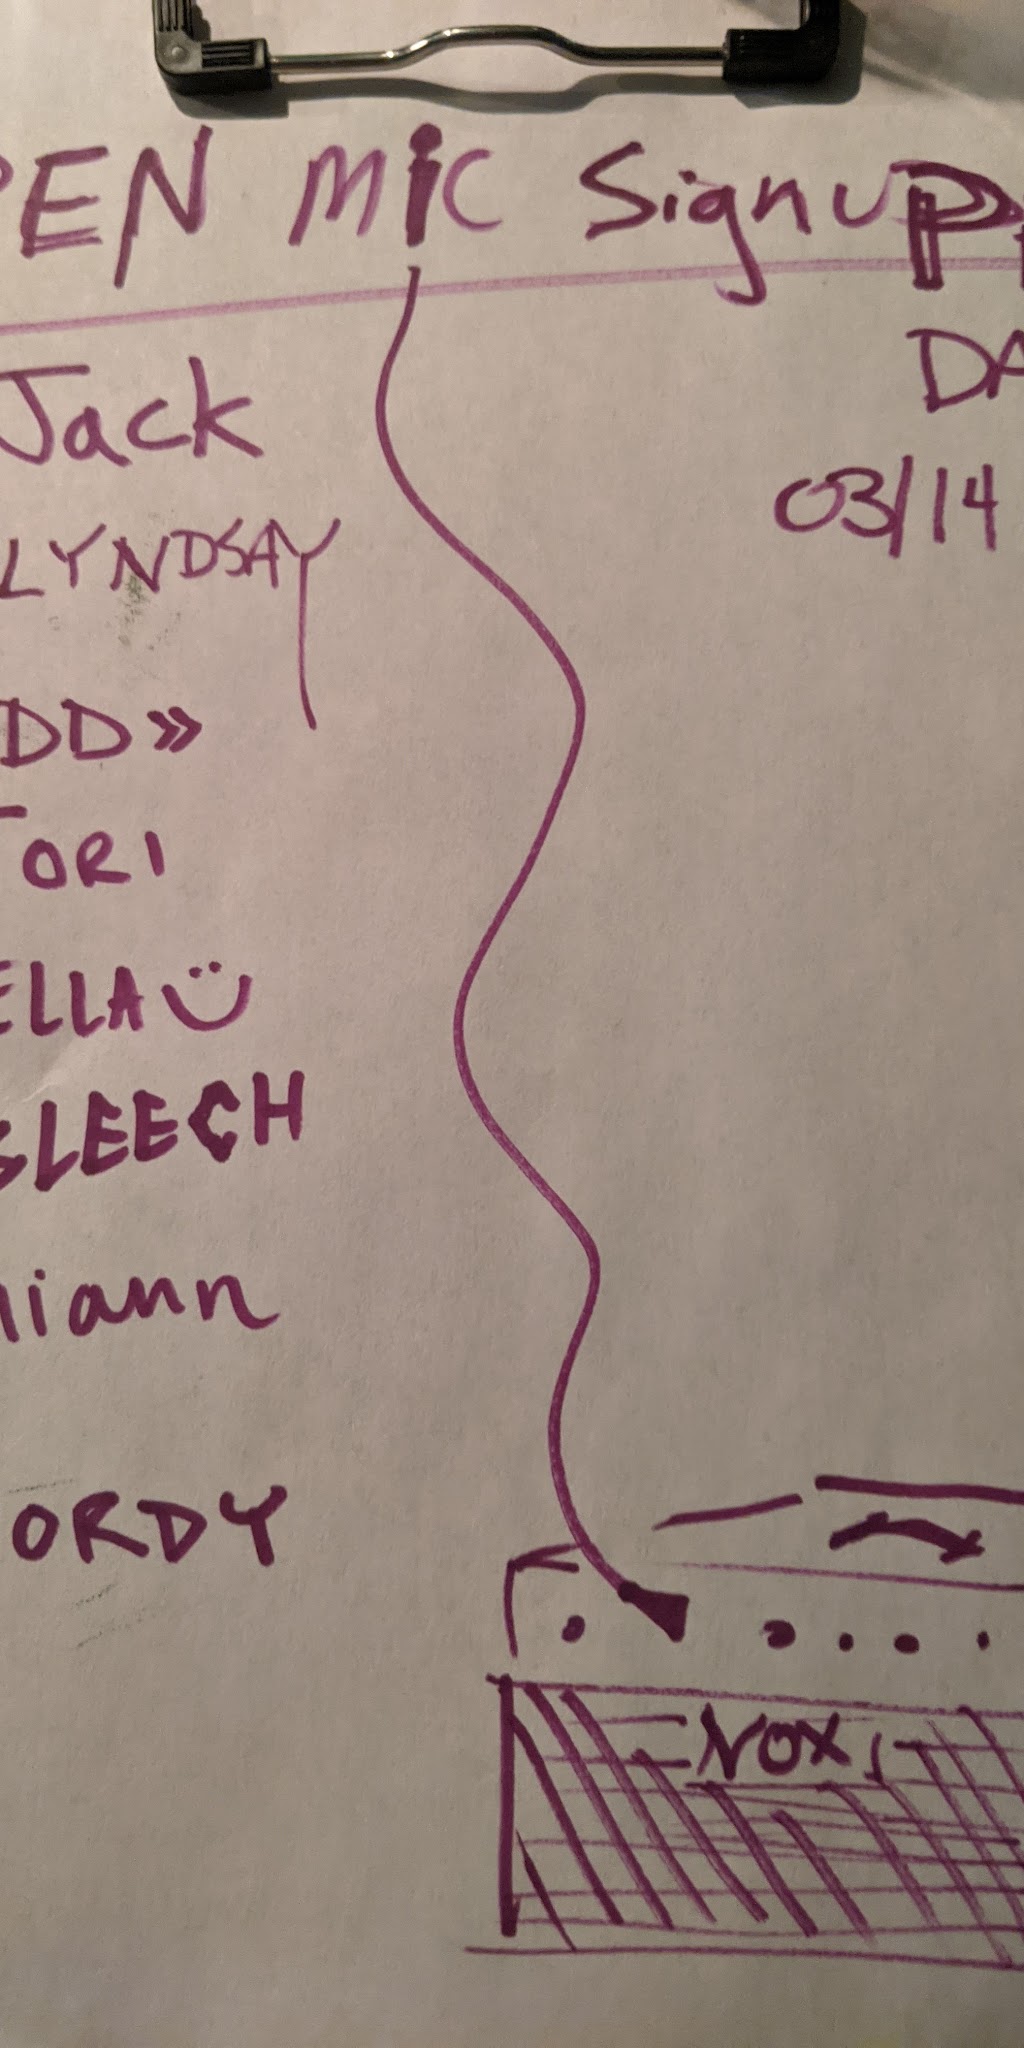 PEN MiC Signup
DA
Jack
03/14
LYNDSAY
DD »
TORI
ELLA
SLEECH
iann
ORDY
NOX